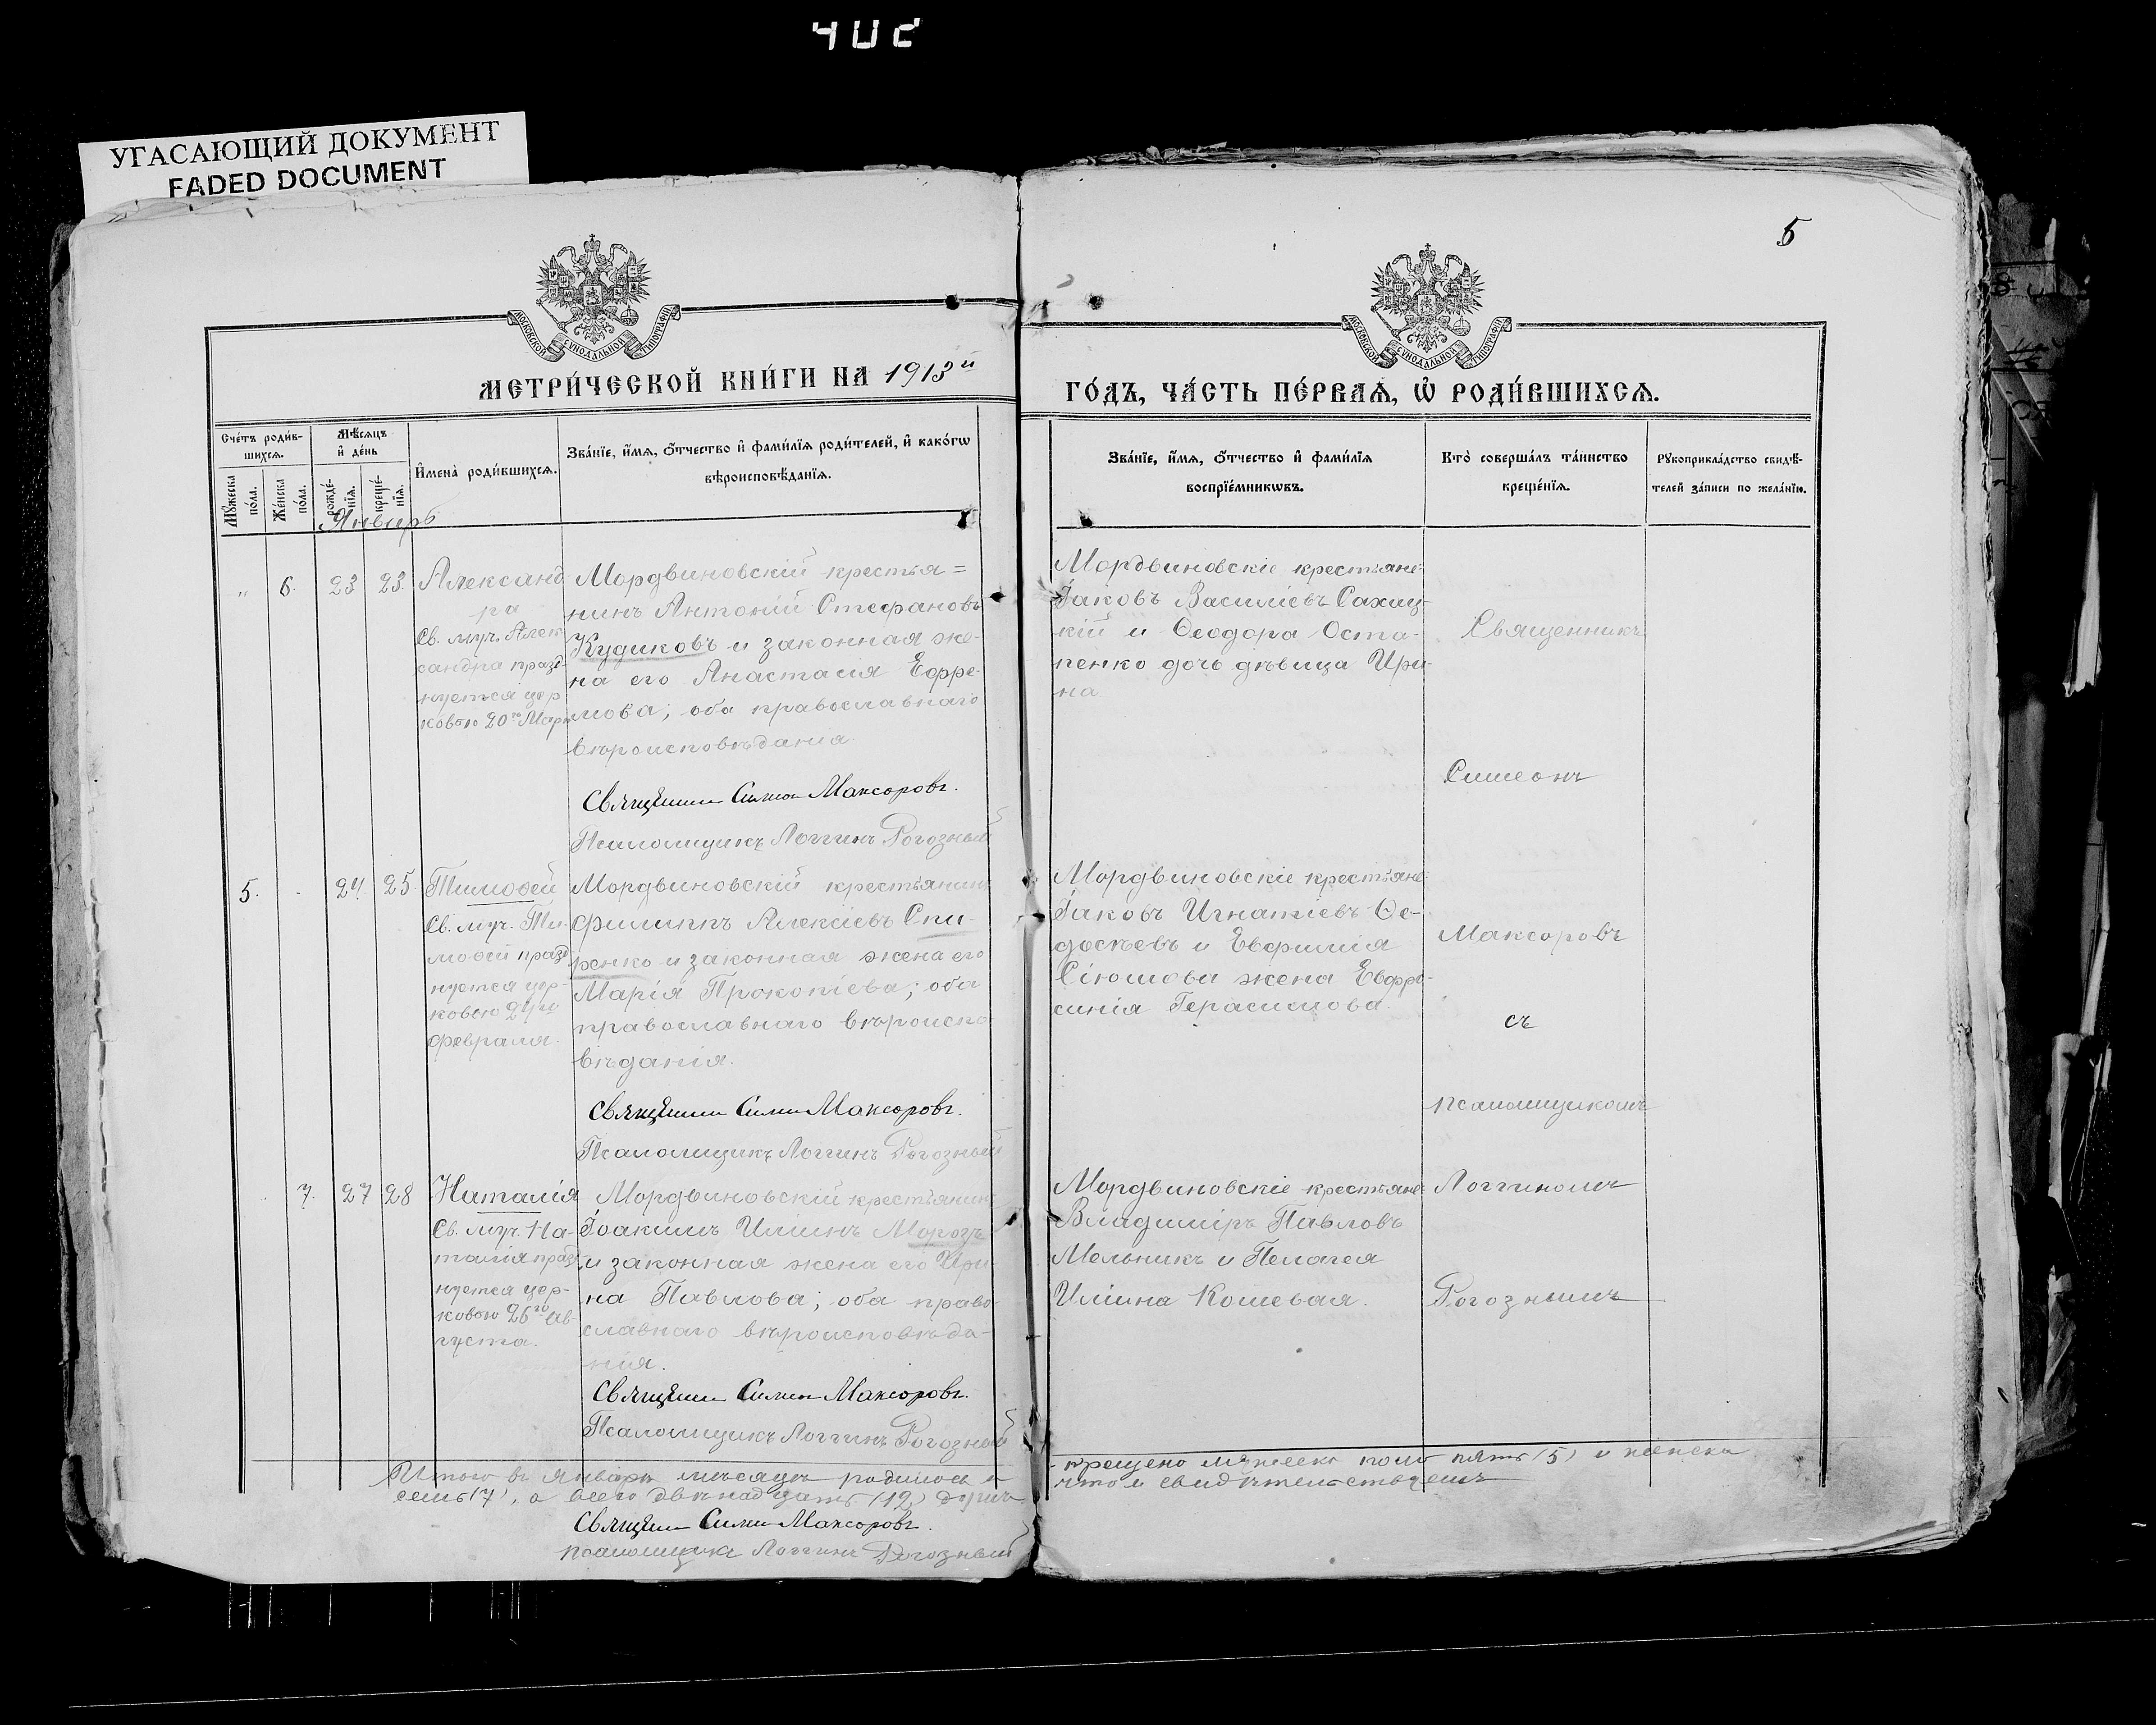 402
УГАСАЮЩИЙ ДОКУМЕНТ
FADED DOCUMENT
5
МОСКОВСКОЙ СѴНОДАЛЬНОЙ ТИПОГРАФІИ
МОСКОВСКОЙ СѴНОДАЛЬНОЙ ТИПОГРАФІИ
МЕТРИ́ЧЕСКОЙ КНИ́ГИ НА 1913й
ГО́ДЪ, ЧА́СТЬ ПЕ́РВАѦ, Ѡ҆ РОДИ́ВШИХСѦ.
Сче́тъ роди́в-
шихсѧ.
Мꙋ́жеска
по́ла.
Же́нска
по́ла.
Мѣ́сѧцъ
и҆ де́нь
рожде́-
нїѧ.
креще́-
нїѧ.
И҆мена̀ роди́вшихсѧ.
Зва́нїе, и҆́мѧ, ѻ҆́тчество и҆ фами́лїѧ роди́телей, и҆ како́гѡ
вѣроисповѣ́данїѧ.
Зва́нїе, и҆́мѧ, ѻ҆́тчество и҆ фами́лїѧ
воспрїе́мникѡвъ.
Кто̀ соверша́лъ та́инство
креще́нїѧ.
Рꙋкоприкла́дство свидѣ́-
телей за́писи по жела́нїю.
Январь
„ 6. 23 23.
Александ
ра
Св. муч. Алек-
сандра празд-
нуется цер
ковью 20го Мар
Мордвиновскій крестья=
нинъ Антоній Стефановъ
Кудиковъ и законная же-
на его Анастасія Ефре-
мова; оба православнаго
вѣроисповѣданія.
Священник Симеон Максоровъ.
Псаломщикъ Логгинъ Рогозный
Мордвиновскіе крестьяне:
Іаковъ Василіевъ Сахац-
кій и Ѳеодора Оста-
пенко дочь дѣвица Ири-
на.
5. - 24 25.
Тимоѳей
Св. муч. Ти-
моѳей празд
нуется цер-
ковью 24го
февраля.
Мордвиновскій крестьянинъ
Филиппъ Алексіевъ Спи-
ренко и законная жена его
Марія Прокопіева; оба
православнаго вѣроиспо-
вѣданія.
Священник Симеон Максоровъ.
Псаломщикъ Логгинъ Рогозный
Мордвиновскіе крестьяне:
Іаковъ Игнатіевъ Ѳе-
досѣевъ и Евфимія
жена Евфро-
синія Герасимова.
7. 27 28
Наталія
Св. муч. На-
талія празд
нуется цер-
ковью 26го Ав-
густа.
Мордвиновскій крестьянинъ
Іоакимъ Иліинъ Морозъ
и законная жена его Ири-
на Павлова; оба право-
славнаго вѣроисповѣда-
нія.
Священник Симеон Максоровъ.
Псаломщикъ Логгинъ Рогозный
Мордвиновскіе крестьяне:
Владиміръ Павловъ
Мельникъ и Пелагея
Иліина Кошевая.
Священникъ
Симеонъ
Максоровъ
съ
псаломщикомъ
Логгиномъ
Рогознымъ
Итого въ Январѣ мѣсяцѣ родилось и
крещено мужеска пола пять (5) и женска
семь (7), а всего двѣнадцать (12) душъ
что и свидѣтельствуемъ
Священник Симеон Максоровъ.
Псаломщикъ Логгинъ Рогозный